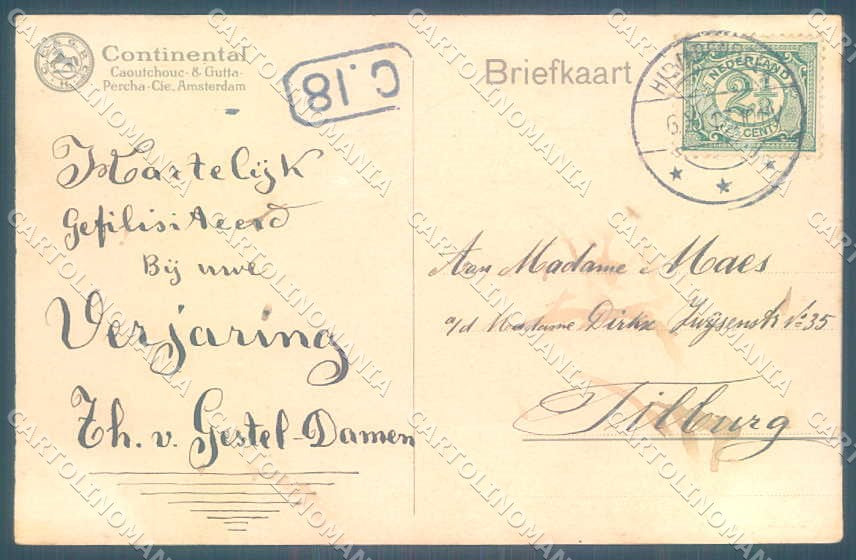 Continental
Caoutchouc- & Gutta-
Percha-Cie, Amsterdam
C.18
Briefkaart
NEDERLAND
2½
CENT
Hartelijk
Gefilisiteerd
Bij uwe
Verjaring
Th. v. Gestel-Damen
Aan Madame Maes
a/d Madame Dirkx Zwijsenstr No 35
Tilburg
CARTOLINOMANIA